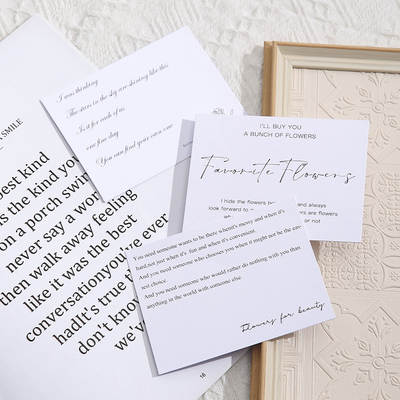 SMILE
est kind
s the kind you
on a porch sw
never say a wor
then walk away feeling
like it was the best
conversation you've ever
had It's true th
don't know
we'v
16
I was thinking
The stars in the sky are shining like this
Is it for each of us
one fine day
You can find your own one
I'LL BUY YOU
A BUNCH OF FLOWERS
Favorite Flowers
I hide the flowers b and always
look forward to flowers are flowers
or not
You need someone wants to be there when it's messy and when it's
hard,not just when it's fun and when it's convenient.
And you need someone who chooses you when it might not be the eas
iest choice
And you need someone who would rather do nothing with you than
anything in the world with someone else
flowers for beauty